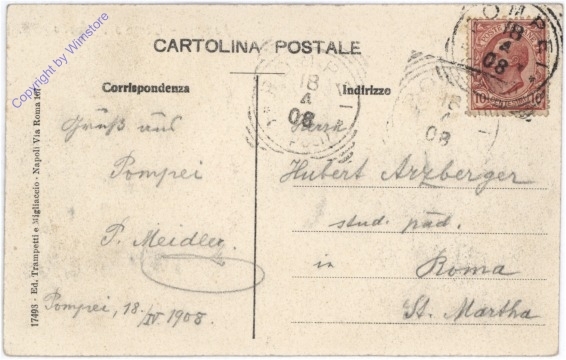 CARTOLINA POSTALE
Corrispondenza
Indirizzo
Gruß aus
Pompei
P. Meidler.
Pompei, 18./IV 1908.
Herrn
Hubert Arzberger
stud. päd.
in
Roma
St. Martha
17493 - Ed. Trampetti e Migliaccio - Napoli Via Roma
POMPEI
18
4
08
18
4
08
18
08
10 10
Copyright by Wimstore